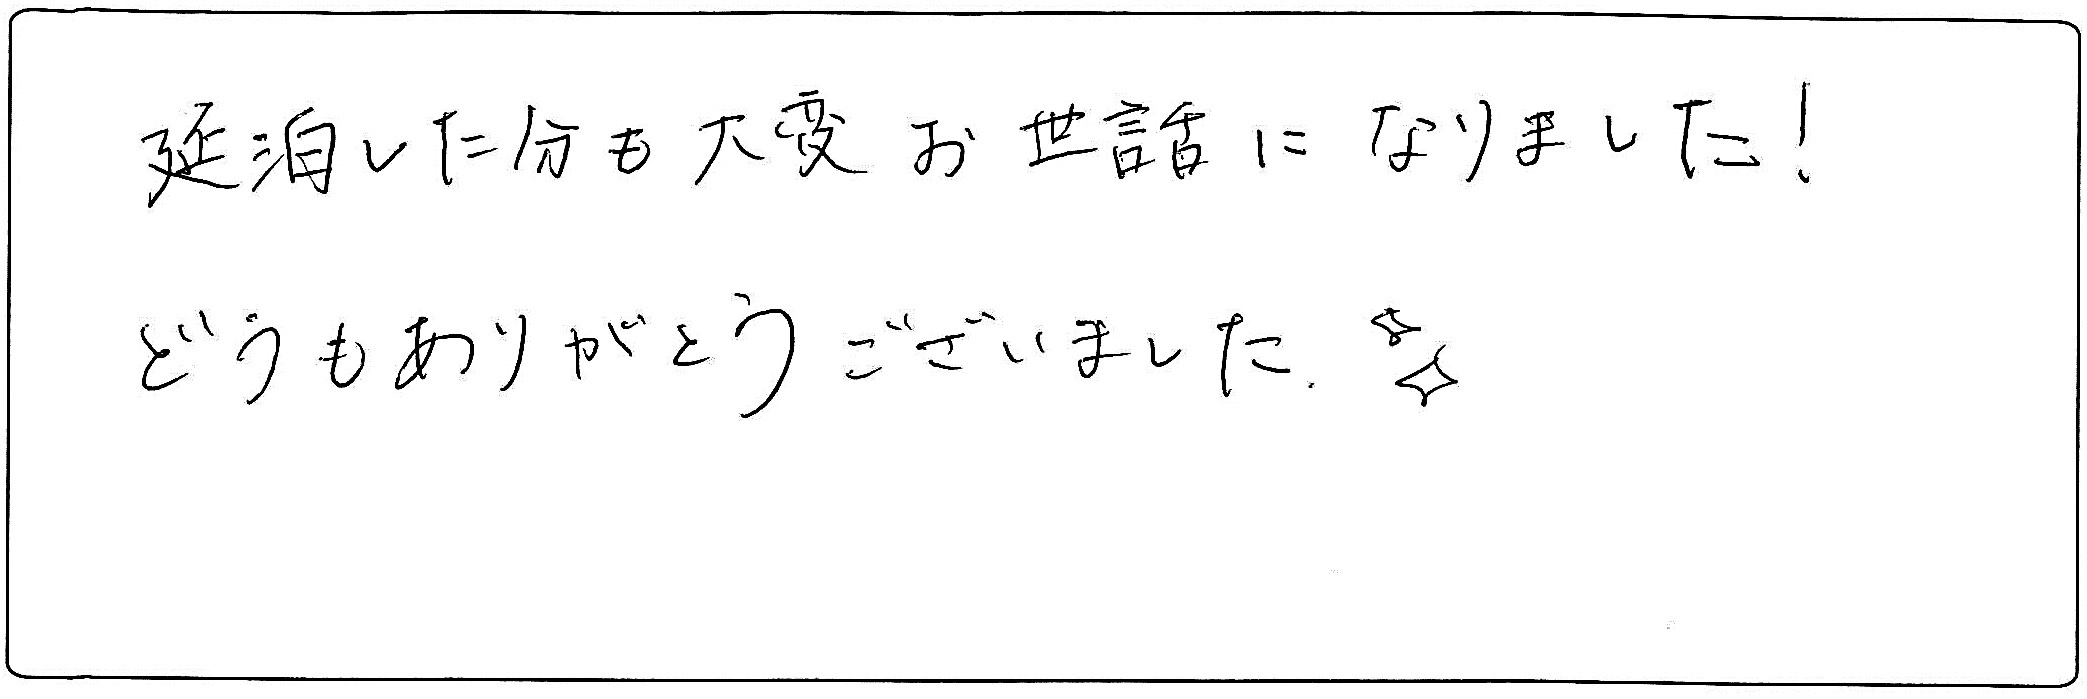 延泊した分も大変お世話になりました!
どうもありがとうございました.